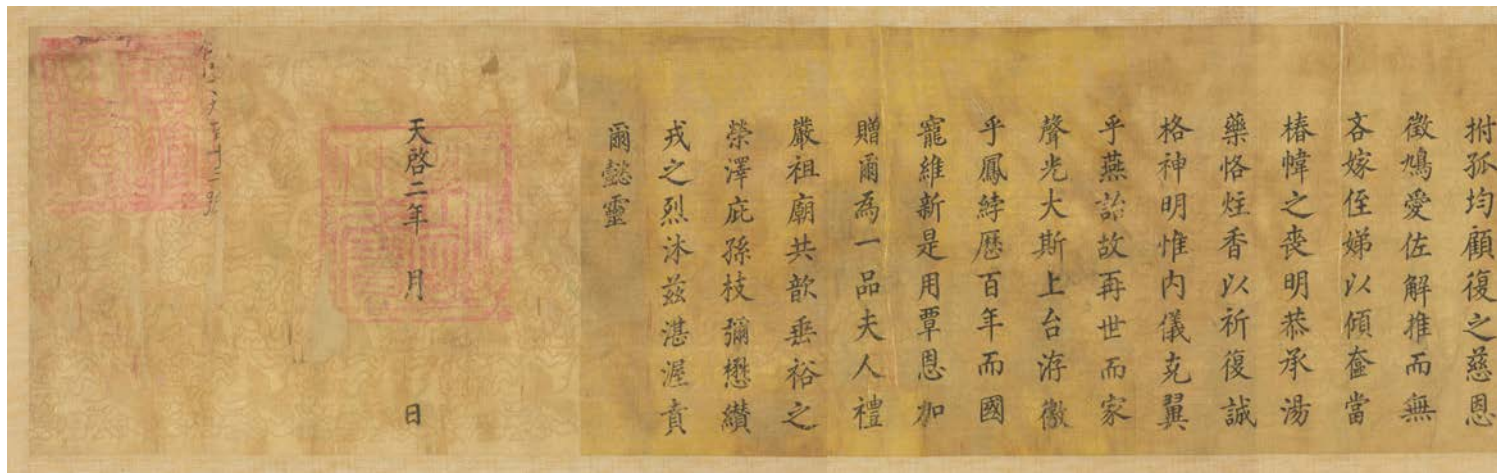 拊孤均顧復之慈恩
徵鳩愛佐解推而無
吝嫁侄娣以傾奩當
椿幃之喪明恭承湯
藥恪炷香以祈復誠
格神明惟内儀克翼
乎燕詒故再世而家
聲光大斯上台游徽
乎鳳綍歷百年而國
寵維新是用覃恩加
贈爾為一品夫人禮
嚴祖廟共歆垂裕之
榮澤庇孫枝彌懋纘
戎之烈沐茲湛渥賁
爾懿靈
天啓二年 月 日